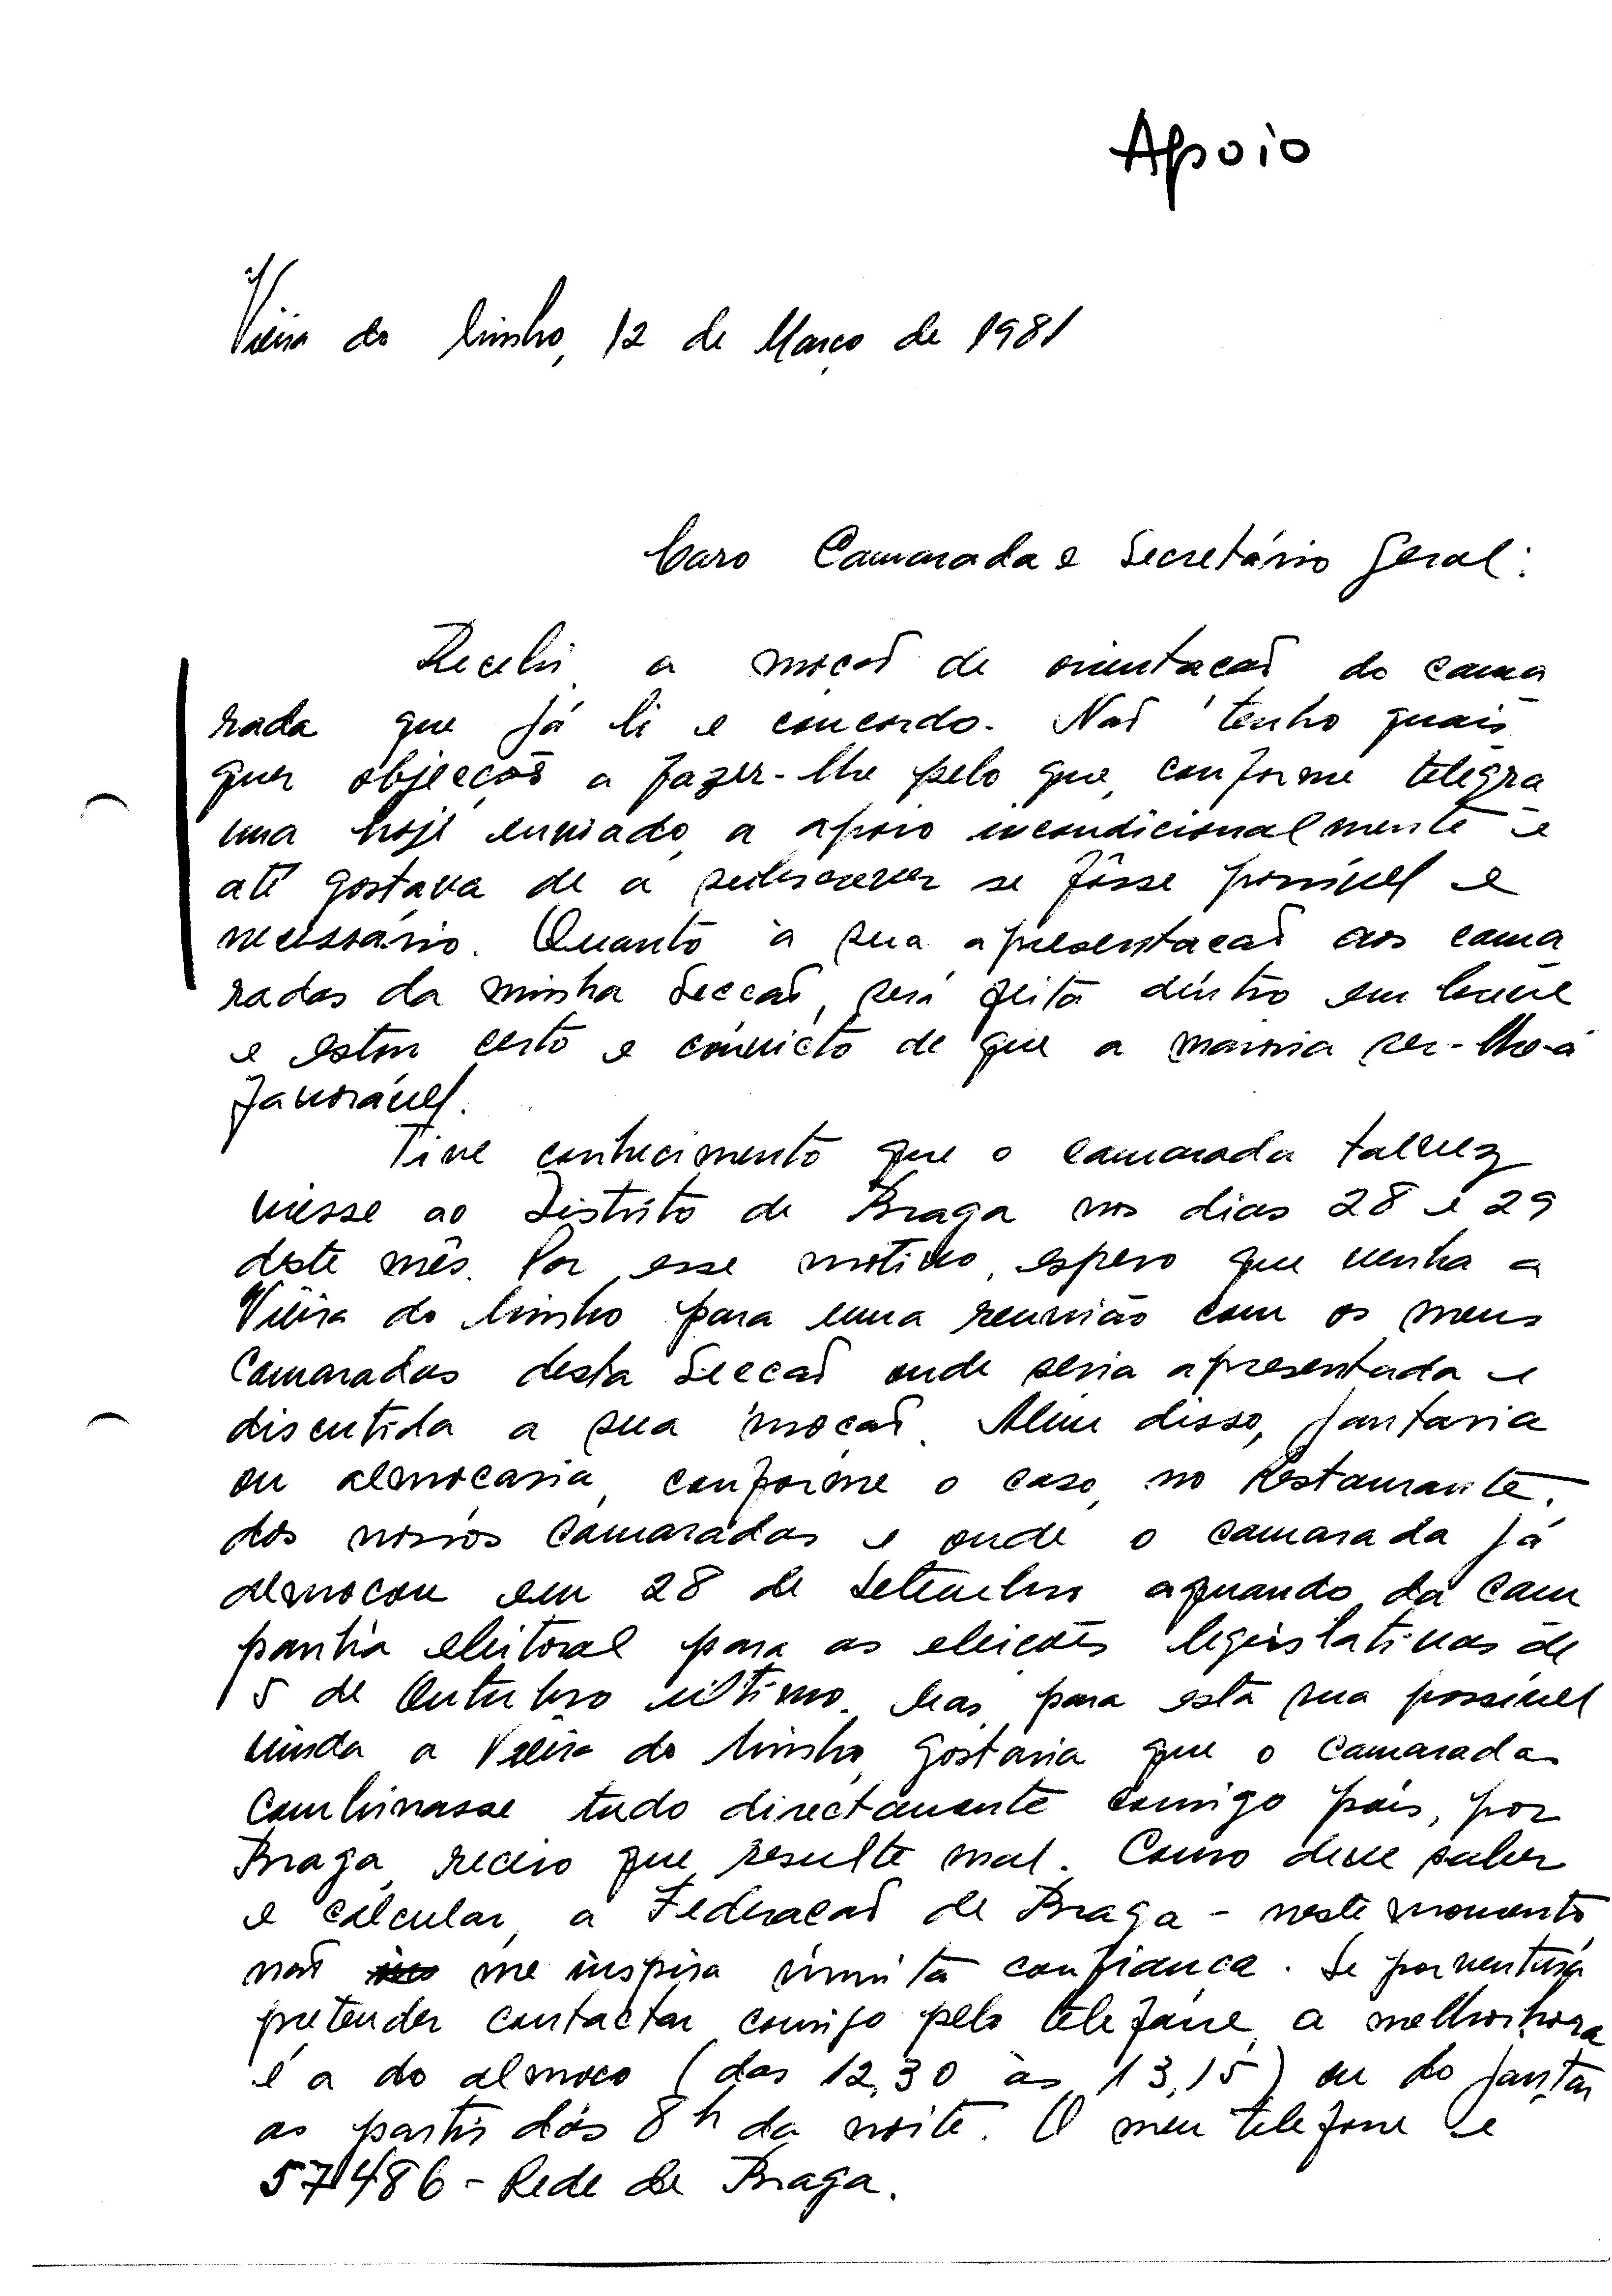 Apoio
Vieira do Minho, 12 de Março de 1981
Caro Camarada e Secretário Geral:
Recebi a moção de orientação do cama
rada que já li e concordo. Não tenho quais
quer objecções a fazer-lhe pelo que, conforme telegra
ma hoje enviado, a apoio incondicionalmente e
até gostava de a subscrever se fôsse possível e
necessário. Quanto à sua apresentação aos cama
radas da minha Secção, será feita dentro em breve
e estou certo e convicto de que a maioria ser-lhe-á
favorável.
Tive conhecimento que o camarada talvez
viesse ao Distrito de Braga nos dias 28 e 29
deste mês. Por esse motivo, espero que venha a
Vieira do Minho para uma reunião com os meus
Camaradas desta Secção onde seria apresentada e
discutida a sua moção. Além disso, jantaria
ou almoçaria, conforme o caso, no Restaurante
dos nossos Camaradas e onde o camarada já
almoçou em 28 de Setembro aquando da Cam
panha eleitoral para as eleições legislativas de
5 de Outubro último. Mas, para esta sua possível
vinda a Vieira do Minho, gostaria que o Camarada
Combinasse tudo directamente comigo pois, por
Braga, receio que resulte mal. Como deve saber
e calcular, a Federação de Braga - neste momento
não me inspira muita confiança. Se porventura
pretender contactar comigo pelo telefone, a melhor hora
é a do almoço (das 12,30 às 13,15) ou do jantar
ao partir das 8h da noite. O meu telefone é
57486 - Rede de Braga.